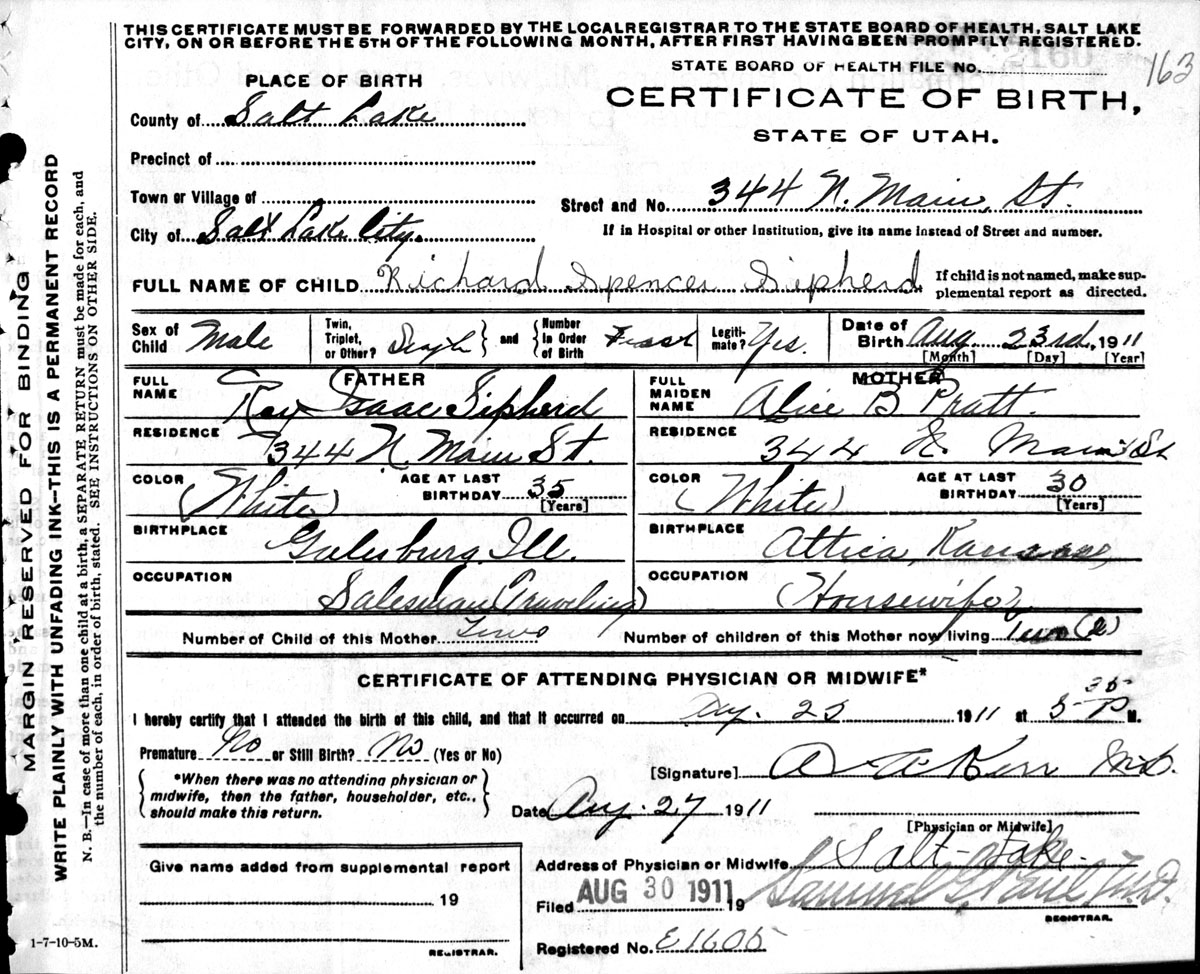 THIS CERTIFICATE MUST BE FORWARDED BY THE LOCAL REGISTRAR TO THE STATE BOARD OF HEALTH, SALT LAKE
CITY, ON OR BEFORE THE 5TH OF THE FOLLOWING MONTH, AFTER FIRST HAVING BEEN PROMPTLY REGISTERED.
STATE BOARD OF HEALTH FILE NO.
163
PLACE OF BIRTH
CERTIFICATE OF BIRTH,
STATE OF UTAH.
County of Salt Lake
Precinct of
Town or Village of
Street and No. 344 N. Main, St.
City of Salt Lake City.
If in Hospital or other Institution, give its name instead of Street and number.
FULL NAME OF CHILD Richard Spencer Sipherd
If child is not named, make sup-
plemental report as directed.
Sex of Child Male
Twin, Triplet, or Other? Single and Number in Order of Birth First
Legiti-mate? Yes.
Date of Birth Aug 23rd, 1911
[Month] [Day] [Year]
FATHER
FULL NAME Ray Isaac Sipherd
RESIDENCE 344 N. Main St.
COLOR (White) AGE AT LAST BIRTHDAY 35 [Years]
BIRTHPLACE Galesburg, Ill.
OCCUPATION Salesman (Traveling)
MOTHER
FULL MAIDEN NAME Alice B Pratt.
RESIDENCE 344 N. Main St
COLOR (White) AGE AT LAST BIRTHDAY 30 [Years]
BIRTHPLACE Attica, Kansas
OCCUPATION (Housewife)
Number of Child of this Mother Two
Number of children of this Mother now living Two (2)
CERTIFICATE OF ATTENDING PHYSICIAN OR MIDWIFE*
I hereby certify that I attended the birth of this child, and that it occurred on Aug. 23 1911 at 5 35 P M.
Premature No or Still Birth? No (Yes or No)
*When there was no attending physician or
midwife, then the father, householder, etc.,
should make this return.
[Signature] Kerr M.D.
Date Aug. 27 1911
[Physician or Midwife]
Give name added from supplemental report
19
REGISTRAR.
Address of Physician or Midwife Salt Lake
Filed AUG 30 1911 19 Samuel G. Paul M.D.
REGISTRAR.
Registered No. E1605
1-7-10-5M.
MARGIN RESERVED FOR BINDING
WRITE PLAINLY WITH UNFADING INK—THIS IS A PERMANENT RECORD
N. B.—In case of more than one child at a birth, a SEPARATE RETURN must be made for each, and
the number of each, in order of birth, stated. SEE INSTRUCTIONS ON OTHER SIDE.